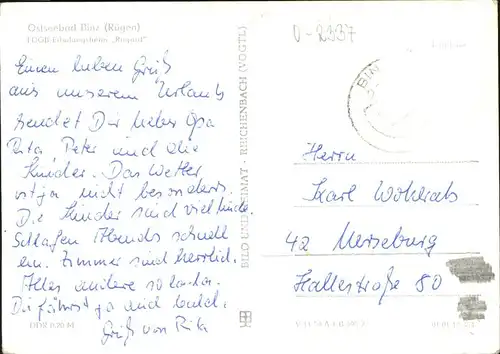 Ostseebad Binz (Rügen)
FDGB-Erholungsheim
0-2337
Einen lieben Gruß
aus unserem Urlaub
sendet Dir lieber Opa
Rita, Peter und die
Kinder. Das Wetter
ist ja nicht besonders.
Die Kinder sind viel
Schlafen Abends schnell
ein. Zimmer sind herrlich.
Alles andere so la-la.
Du fährst ja auch bald.
Gruß von Rita
DDR 0,20 M
BILD UND HEIMAT · REICHENBACH (VOGTL)
BIN
Herrn
Karl Wohlrab
42 Merseburg
Hallestraße 80